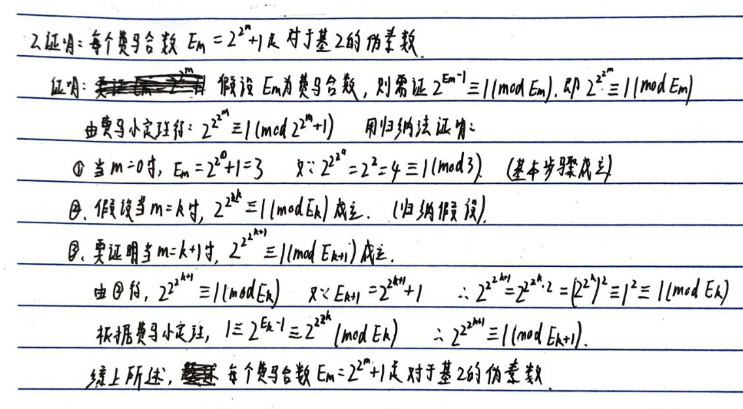 2.证明:每个费马合数 Em=2^{2^m}+1是对于基2的伪素数.
证明: 假设 Em为费马合数,则需证 2^{Em-1}≡1(mod Em).即 2^{2^{2^m}}≡1(mod Em)
由费马小定理得: 2^{2^{2^m}}≡1(mod 2^{2^m}+1) 用归纳法证明:
① 当m=0时, Em=2^{2^0}+1=3 又∵ 2^{2^{2^0}}=2^2=4≡1(mod3). (基本步骤成立)
②.假设当m=k时, 2^{2^{2^k}}≡1(mod Ek)成立. (归纳假设).
③.要证明当m=k+1时, 2^{2^{2^{k+1}}}≡1(mod E_{k+1})成立.
由②得, 2^{2^{2^{k+1}}}≡1(mod Ek) 又∵ E_{k+1}=2^{2^{k+1}}+1 ∴ 2^{2^{2^{k+1}}}=2^{2^{2^k}·2}=(2^{2^k})^2≡1^2≡1(mod Ek)
根据费马小定理, 1≡2^{Ek-1}≡2^{2^{2^k}}(mod Ek) ∴ 2^{2^{2^{k+1}}}≡1(mod E_{k+1}).
综上所述, 每个费马合数Em=2^{2^m}+1是对于基2的伪素数.